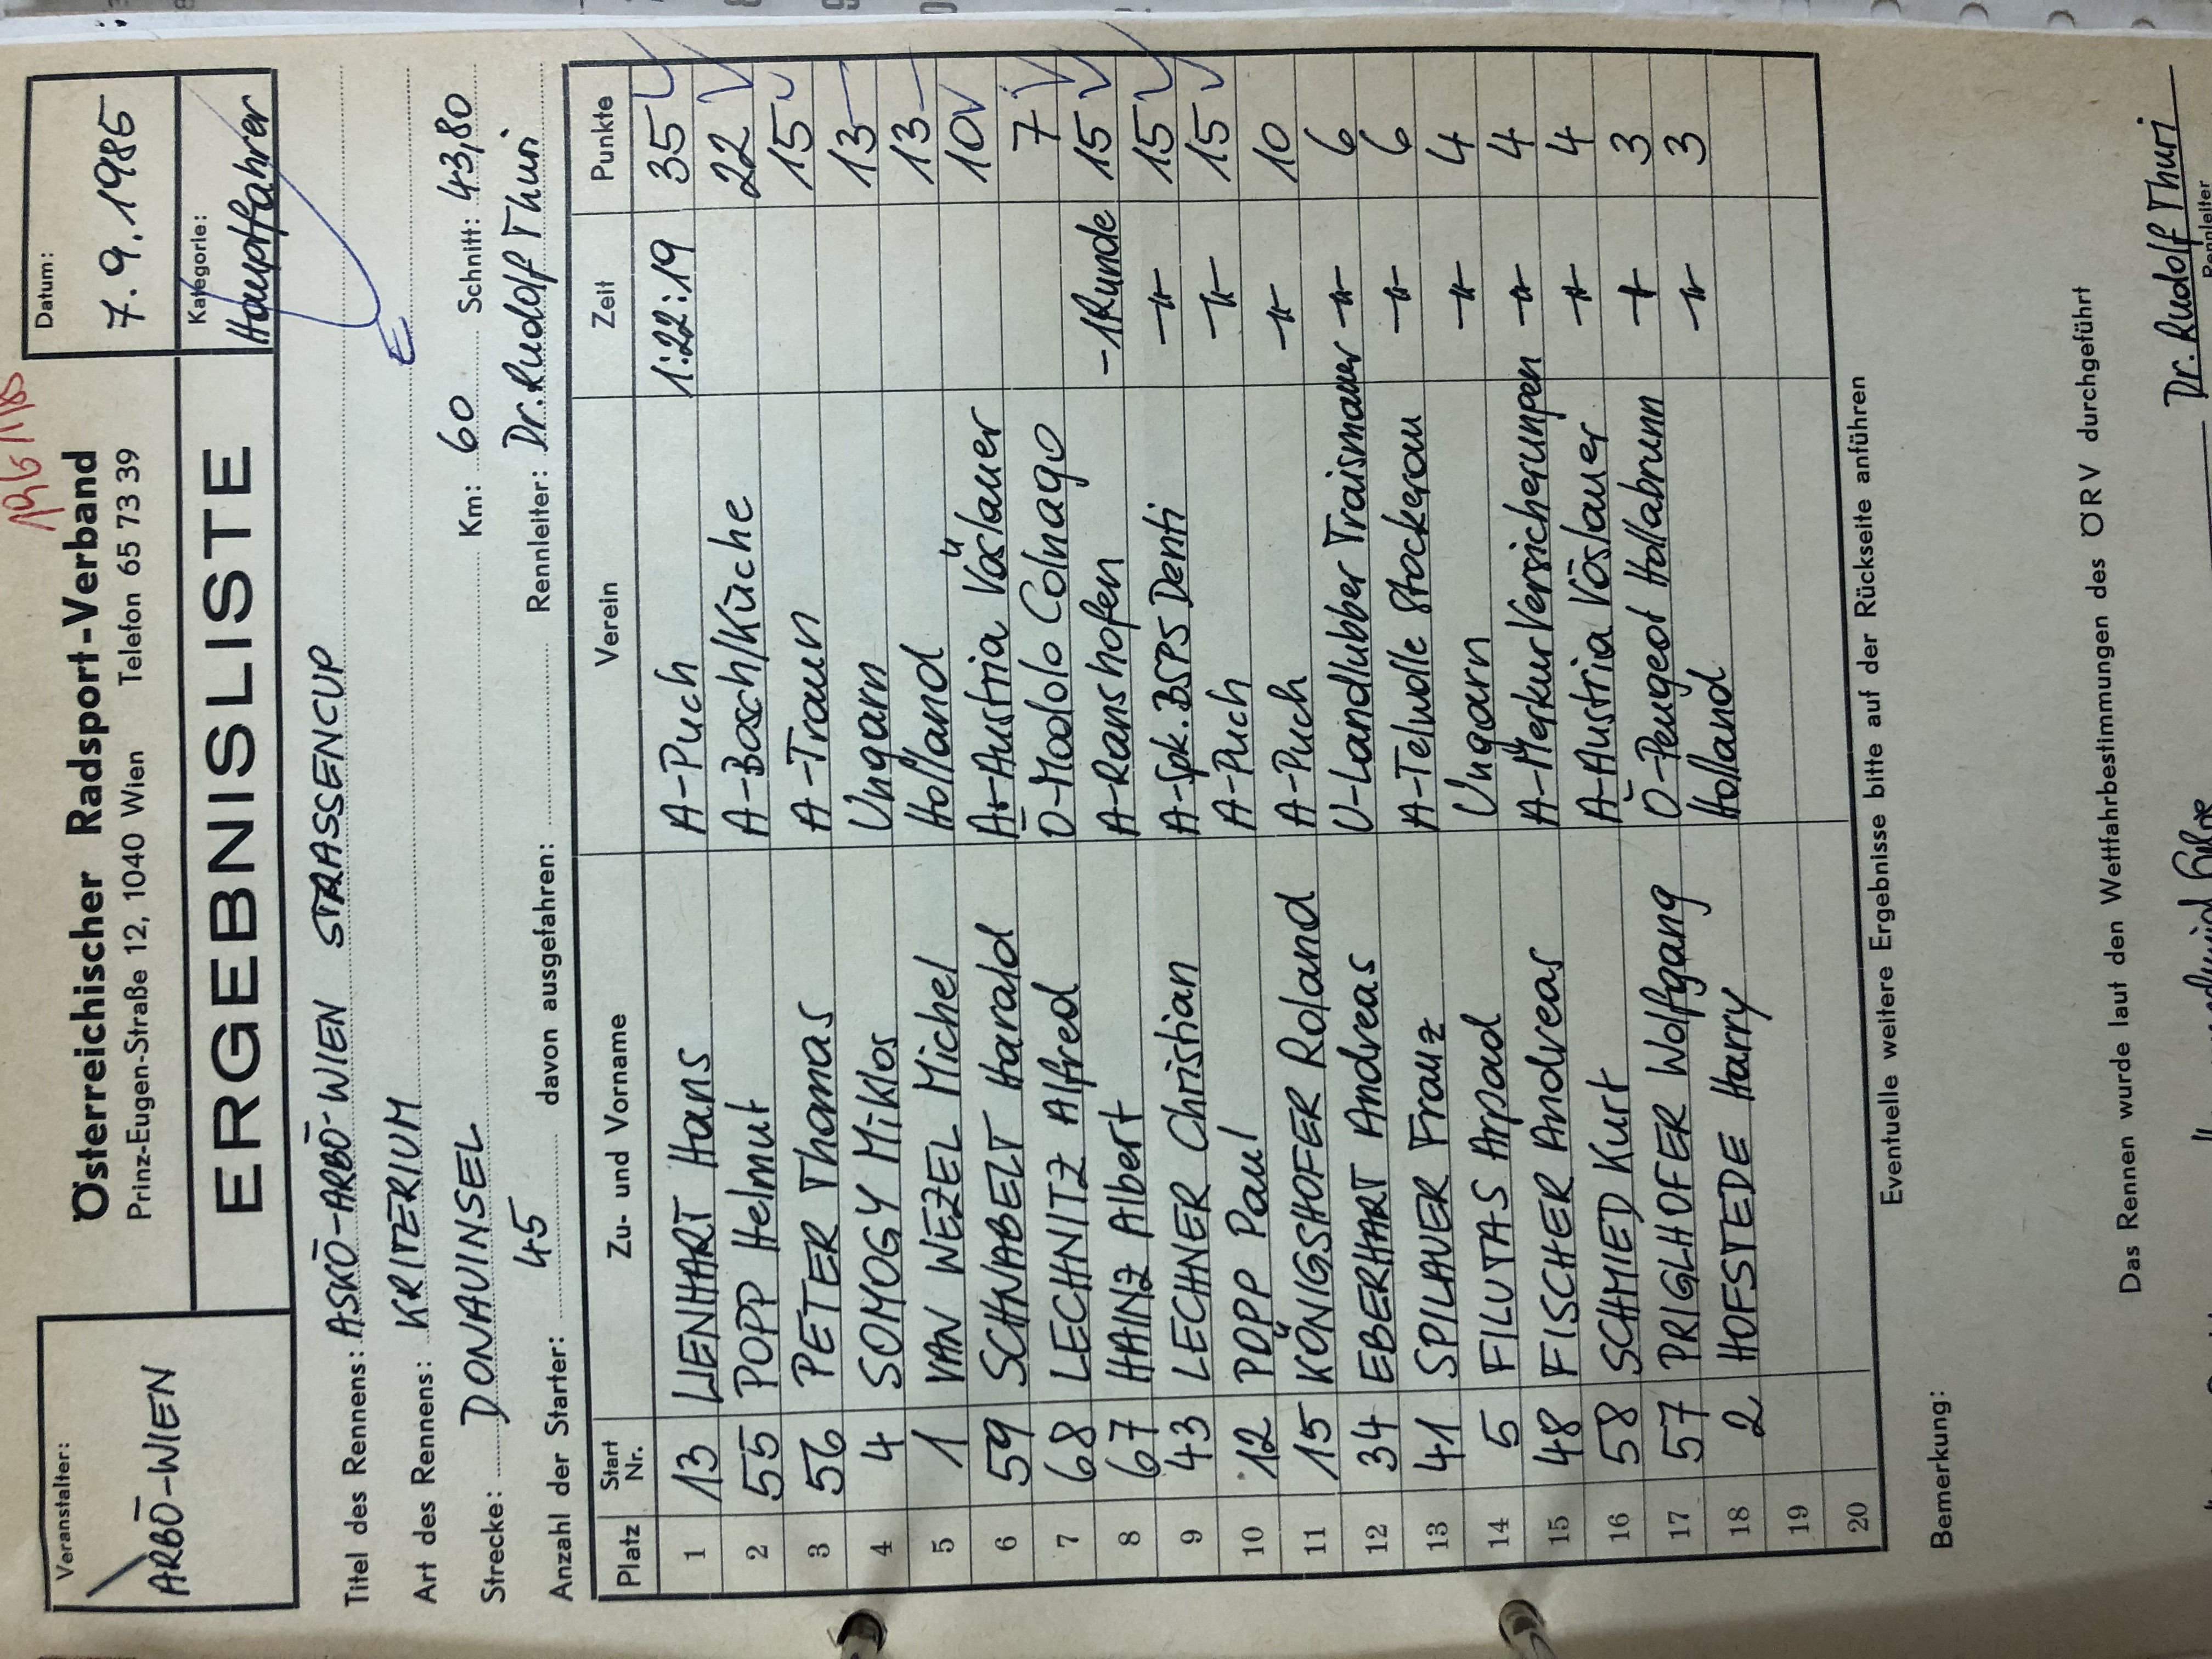 196/1/85
Veranstalter:
ARBÖ-WIEN
Österreichischer Radsport-Verband
Prinz-Eugen-Straße 12, 1040 Wien Telefon 65 73 39
ERGEBNISLISTE
Datum:
7.9.1985
Kategorie:
Hauptfahrer
Titel des Rennens: ASKÖ-ARBÖ-WIEN STRASSENCUP
Art des Rennens: KRITERIUM
E
Strecke: DONAUINSEL Km: 60 Schnitt: 43,80
Anzahl der Starter: 45 davon ausgefahren: Rennleiter: Dr. Rudolf Thuri
Platz Start Nr. Zu- und Vorname Verein Zeit Punkte
1 13 LIENHART Hans A-Puch 1:22:19 35
2 55 POPP Helmut A-Bosch/Küche 22
3 56 PETER Thomas A-Traun 15
4 4 SOMOGY Miklos Ungarn 13
5 1 VAN WEZEL Michel Holland 13
6 59 SCHNABELT Harald A-Austria Vöslauer 10
7 68 LECHNITZ Alfred Ö-Modolo Colnago 7
8 67 HAINZ Albert A-Ranshofen -1Runde 15
9 43 LECHNER Christian A-Spk. BSPS Denti -"- 15
10 12 POPP Paul A-Puch -"- 15
11 15 KÖNIGSHOFER Roland A-Puch -"- 10
12 34 EBERHART Andreas U-Landlubber Traismauer -"- 6
13 41 SPILAUER Franz A-Telwolle Stockerau -"- 6
14 5 FILUTAS Arpad Ungarn -"- 4
15 48 FISCHER Andreas A-Merkur Versicherungen -"- 4
16 58 SCHMIED Kurt A-Austria Vöslauer -"- 4
17 57 PRIGLHOFER Wolfgang Ö-Peugeot Hollabrunn -"- 3
18 2 HOFSTEDE Harry Holland -"- 3
19
20
Eventuelle weitere Ergebnisse bitte auf der Rückseite anführen
Bemerkung:
Das Rennen wurde laut den Wettfahrbestimmungen des ÖRV durchgeführt
Dr. Rudolf Thuri
Rennleiter